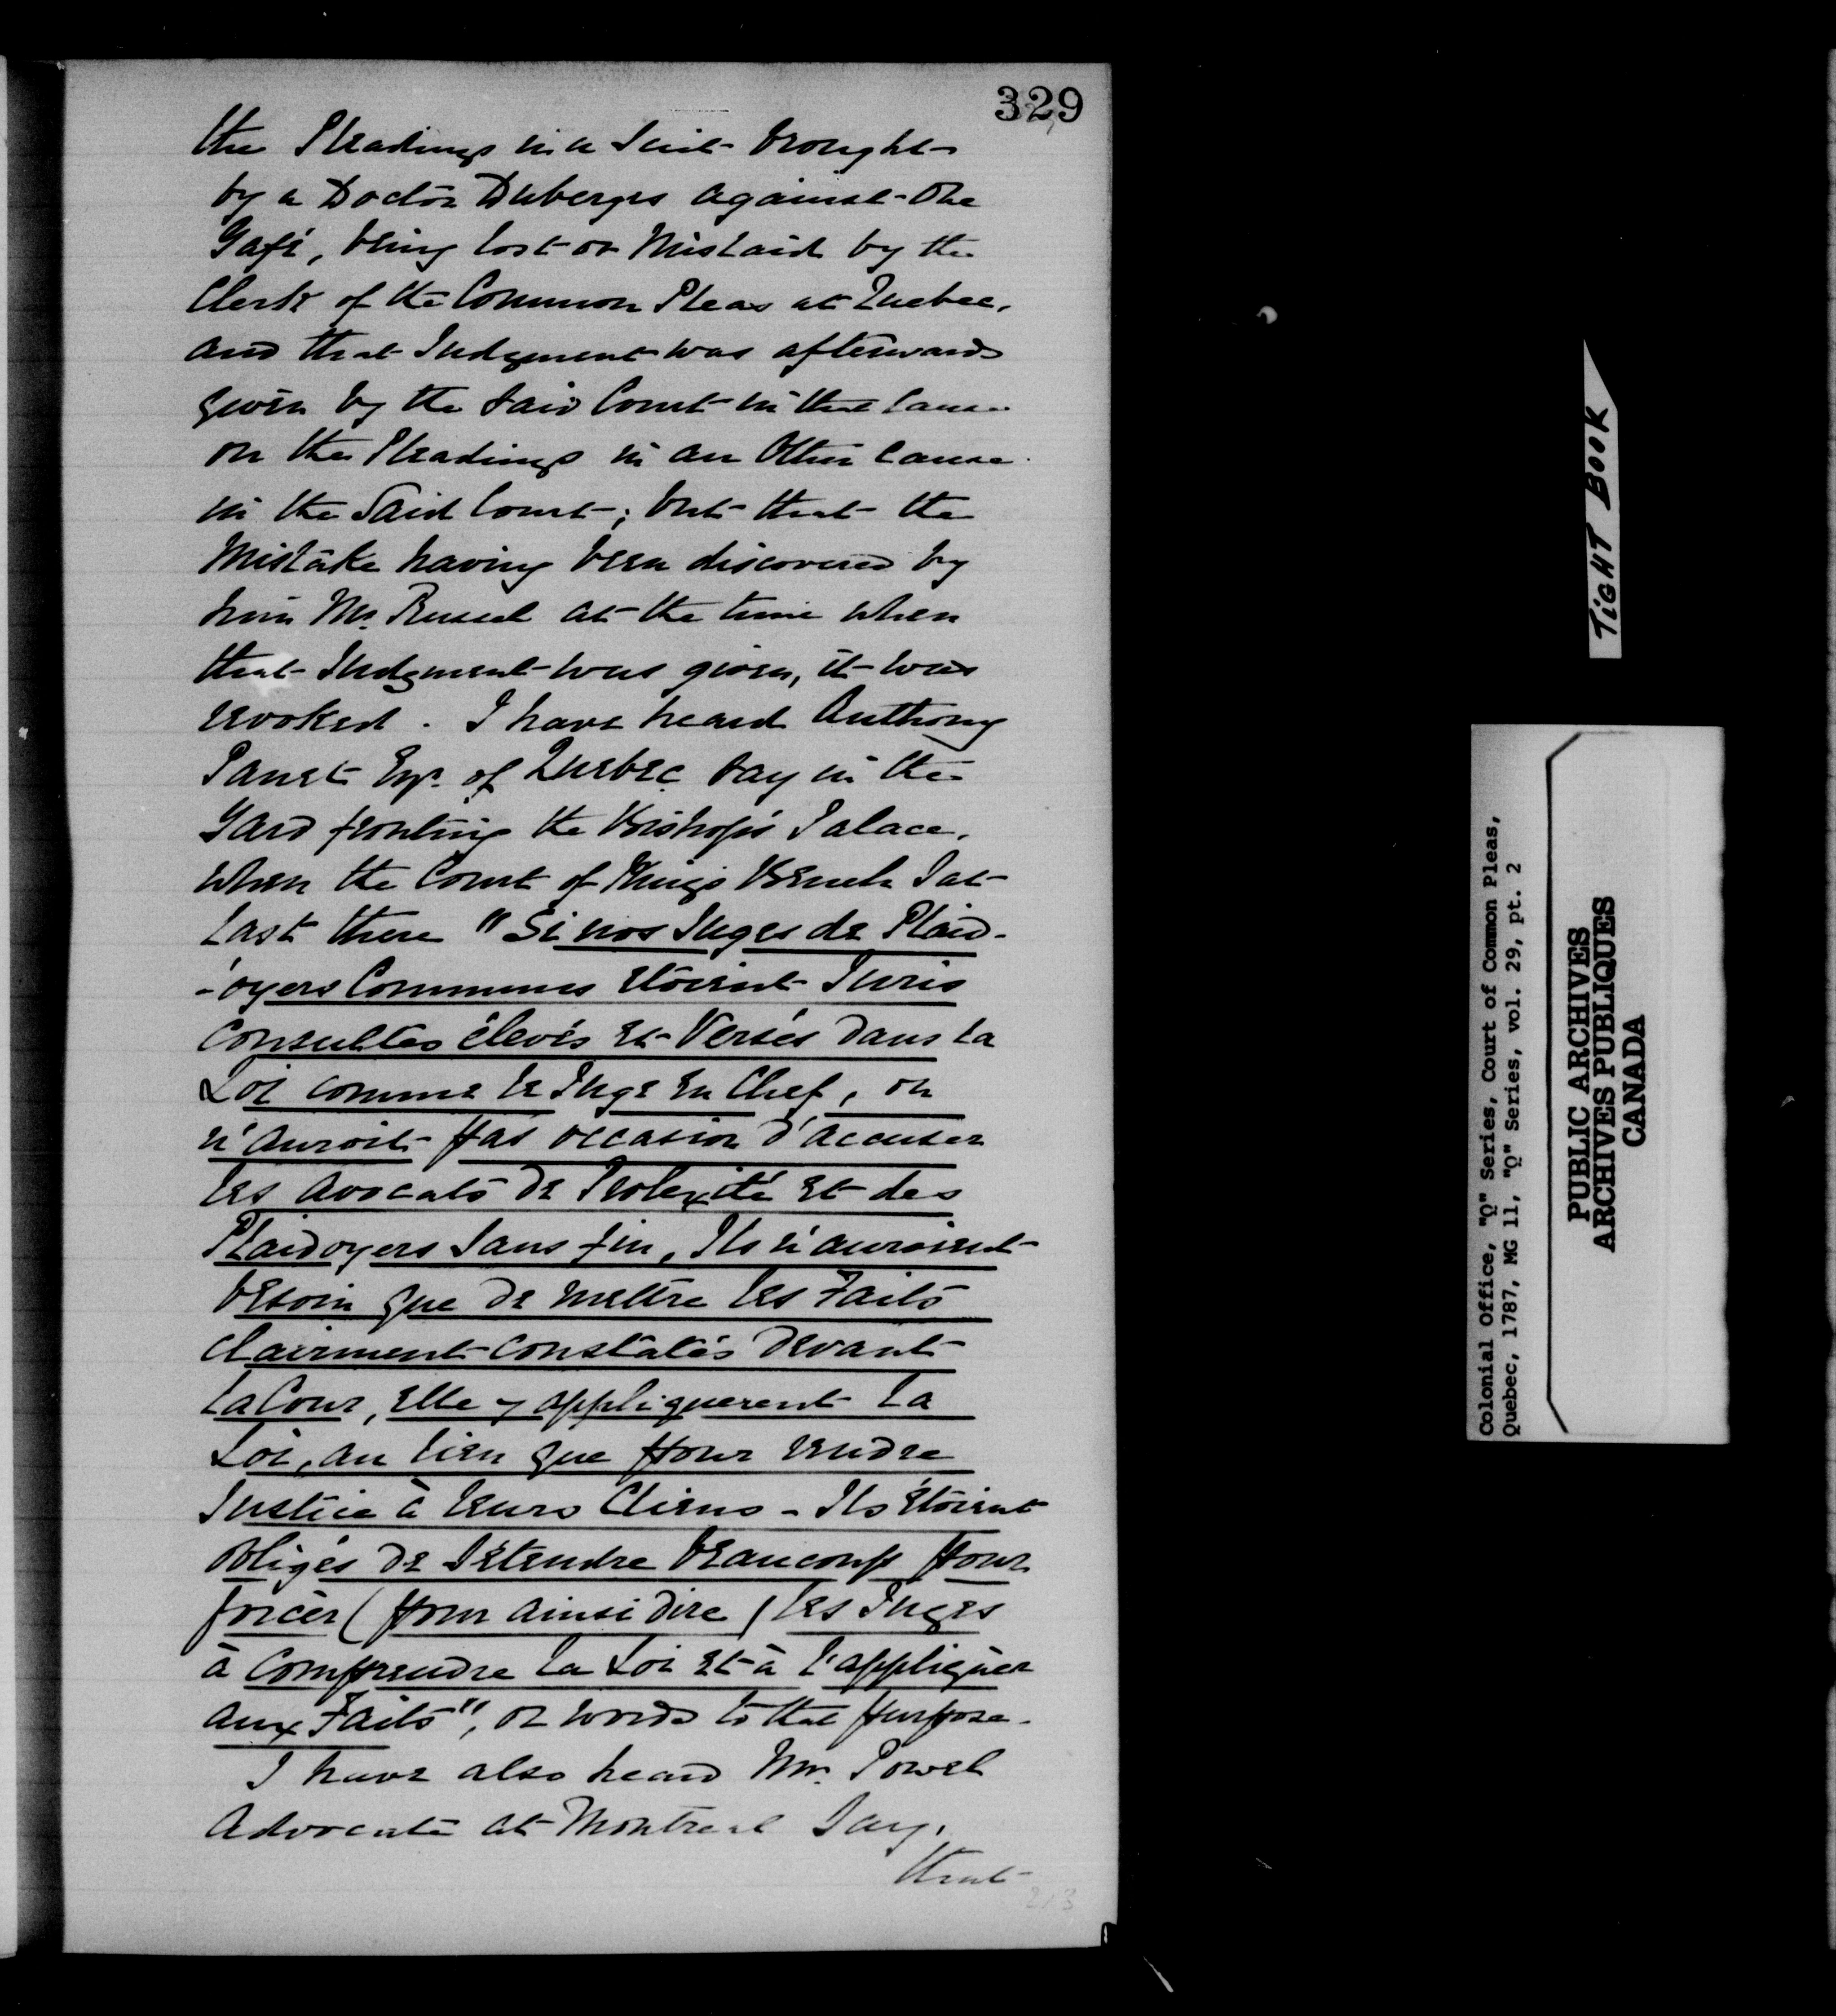 329
the Pleadings in a Suit brought
by a Doctor Duberges against One
Gafé, being lost or Mislaid by the
Clerk of the Common Pleas at Quebec,
and that Judgement was afterwards
given by the said Court in that Cause
on the Pleadings in an Other Cause
in the Said Court; but that the
Mistake having been discovered by
him Mr. Russel at the time when
that Judgment was given, it was
revoked. I have heard Anthony
Panet Esqr. of Quebec say in the
Yard fronting the Bishop's Palace,
when the Court of Kings Bench Sat
last there "Si nos Juges de Plaid-
-oyers Communes etoient Juris
Consultes élevés et Versés dans la
Loi comme le Juge en Chef, on
n'auroit pas occasion d'accuser
les avocats de Prolexité et des
Plaidoyers sans fin, Ils n'auroient
besoin que de mettre les Faits
clairment constatés devant
la Cour, elle y appliquerent la
Loi, au lieu que pour rendre
Justice à leurs Cliens - Ils étoient
obligés de s'etendre beaucoup pour
forcer (pour ainsi dire) les Juges
à comprendre la Loi et à l'appliquer
aux Faits", or words to that purpose.
I have also heard Mr. Powel
Advocate at Montreal Say,
that
213
TIGHT BOOK
Colonial Office, "Q" Series, Court of Common Pleas,
Quebec, 1787, MG 11, "Q" Series, vol. 29, pt. 2
PUBLIC ARCHIVES
ARCHIVES PUBLIQUES
CANADA